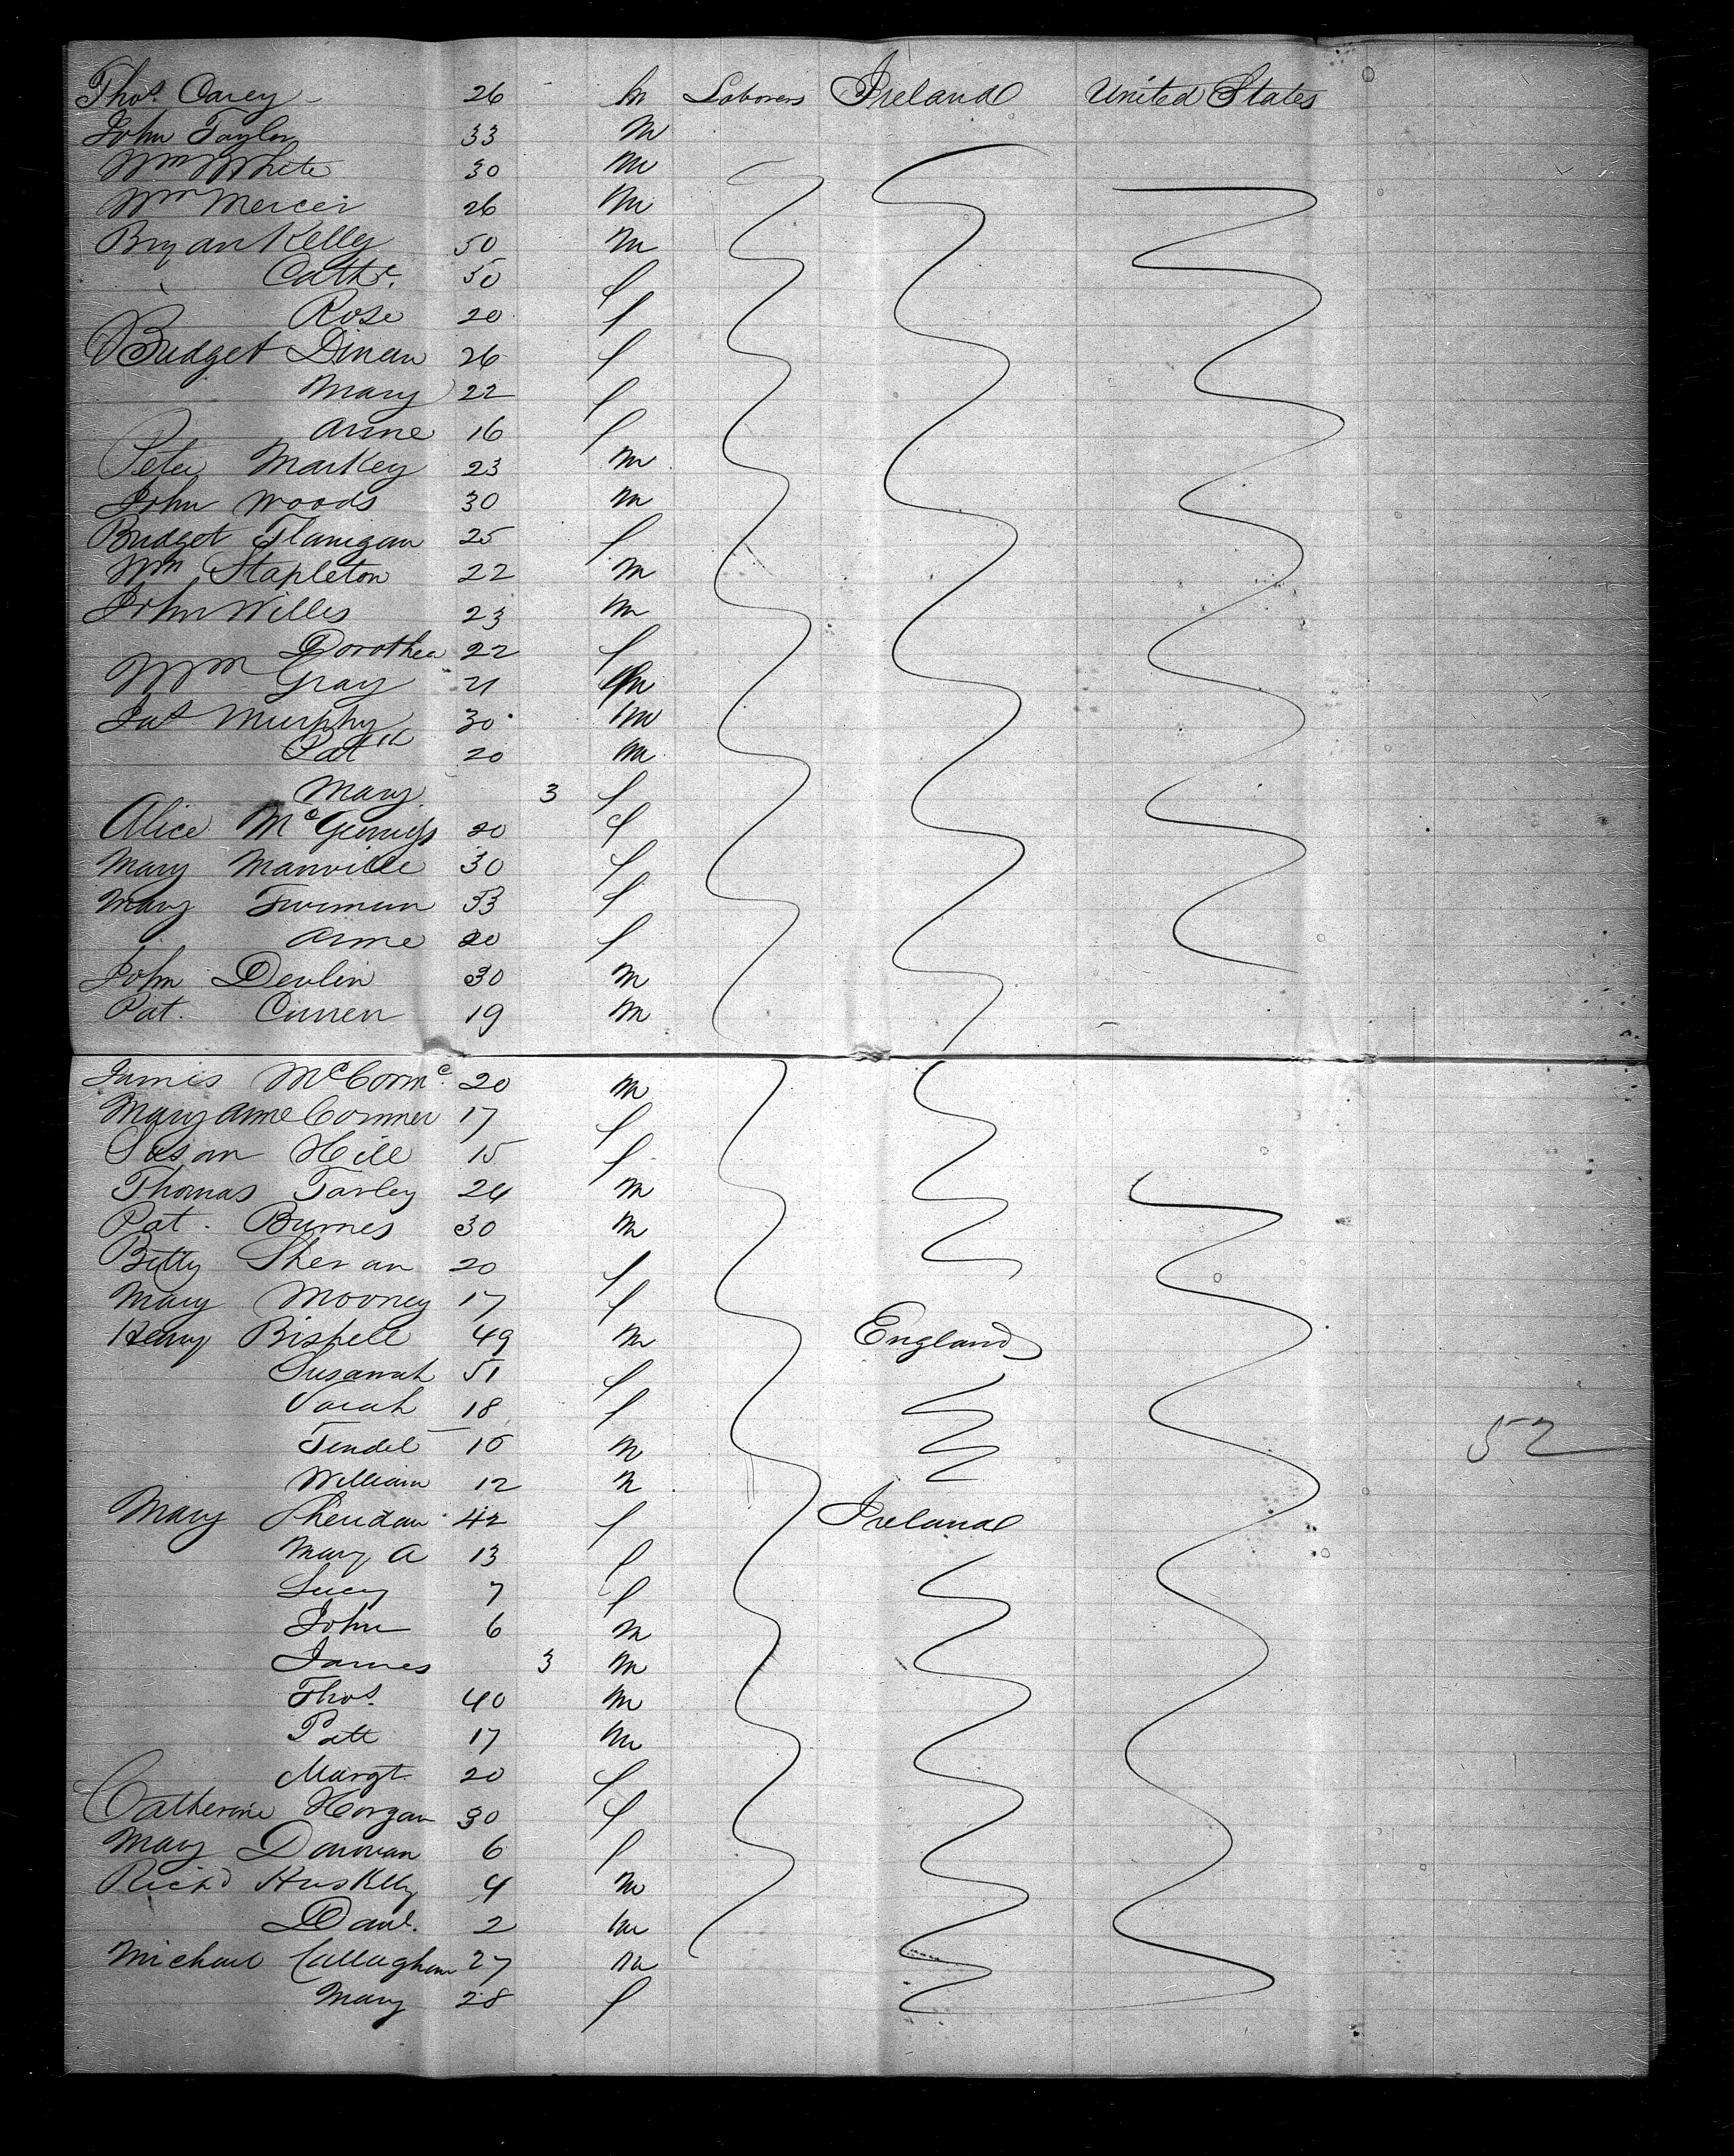 Thos. Carey 26 m Laborers Ireland United States
John Taylor 33 m
Wm White 30 m
Wm Mercer 26 m
Bryan Kelly 50 m
Cathe. 50 f
Rose 20 f
Bridget Dinan 26 f
Mary 22 f
Anne 16 f
Peter Markey 23 m
John Woods 30 m
Bridget Flanigan 25 f
Wm Stapleton 22 m
John Willis 23 m
Dorothea 22 f
Wm Gray 21 m
Jas Murphy 30 m
Patk 20 m
Mary 3 f
Alice 20 f
Mary Manville 30 f
Mary 33 f
Anne 20 f
John Devlin 30 m
Pat. Curren 19 m
James McCormc. 20 m
Mary Anne Conner 17 f
Susan Hill 15 f
Thomas Farley 24 m
Pat. Burnes 30 m
Betty Sheran 20 f
Mary Mooney 17 f
Henry Bispell 49 m England
Susanah 51 f
Sarah 18 f
15 m
William 12 m
Mary Sheridan 42 f Ireland
Mary A 13 f
Lucy 7 f
John 6 m
James 3 m
Thos. 40 m
Patt 17 m
Margt. 20 f
Catherine Horgan 30 f
Mary Donovan 6 f
Richd 4 m
Danl. 2 m
Michael Callaghan 27 m
Mary 28 f
52